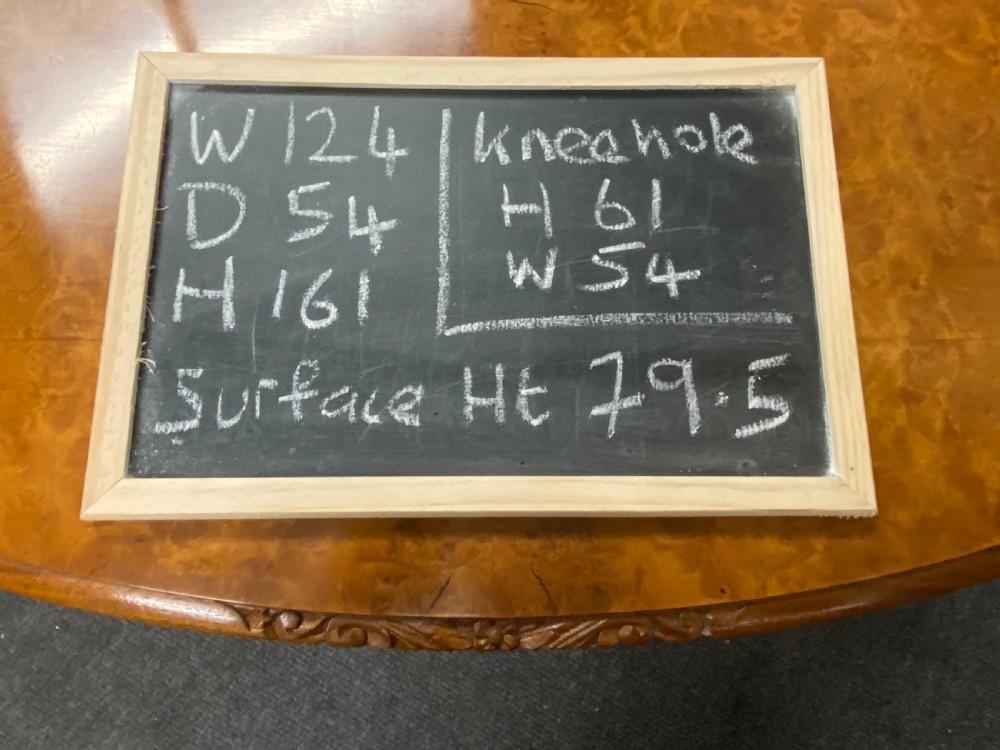 W 124
D 54
H 161
Kneehole
H 61
W 54
Surface Ht 79.5